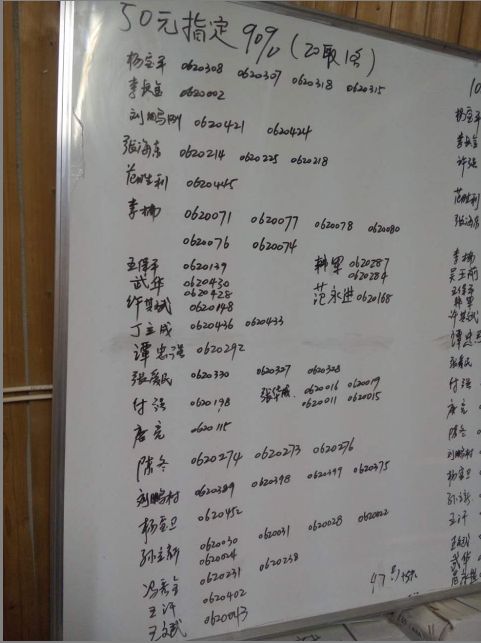 50元指定 90% (20取1名)
杨宝平 0620308 0620307 0620318 0620315
李长宝 0620002
刘鹏刚 0620421 0620424
张海东 0620214 0620225 0620218
范胜利 0620445
李楠 0620071 0620077 0620078 0620080
0620076 0620074
王保平 0620139
武华 0620430
0620428
韩军 0620287
0620284
许其斌 0620148
范永进 0620168
丁立成 0620436 0620433
谭忠强 0620292
张彦民 0620330 0620327 0620328
付强 0620198
张华威 0620016 0620019
0620011 0620015
唐亮 0620115
陈冬 0620274 0620273 0620276
刘鹏村 0620389 0620398 0620399 0620375
杨宝卫 0620452
孙立新 0620030 0620031 0620028 0620022
0620024
0620231 0620238
王浒 0620402
王文斌
47羽
10
杨宝平
李长宝
许强
范胜利
张海东
李楠
王保平
韩军
许其斌
谭忠
张彦民
付强
唐亮
陈冬
刘鹏村
杨宝卫
孙立新
王浒
武华